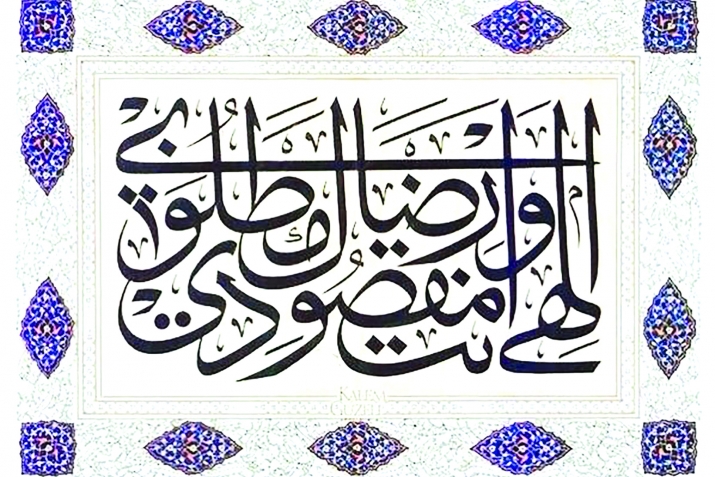 إلهي أنت مقصودي ورضاك مطلوبي
KALEM GÜZELİ